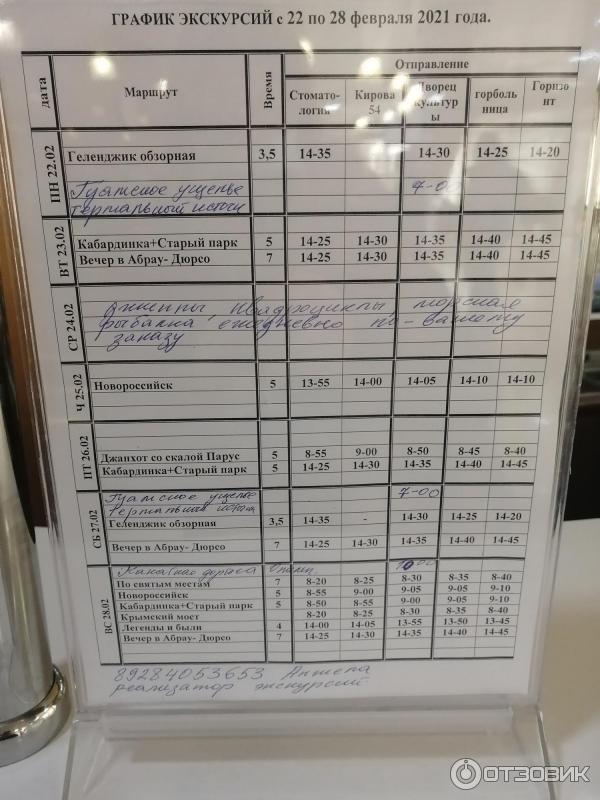 ГРАФИК ЭКСКУРСИЙ с 22 по 28 февраля 2021 года.
дата Маршрут Время Отправление
Стомато-логия Кирова 54 Дворец культуры горбольница Горизонт
ПН 22.02
Геленджик обзорная 3,5 14-35 14-30 14-25 14-20
Гуамское ущелье 7-00
термальный источн
ВТ 23.02
Кабардинка+Старый парк 5 14-25 14-30 14-35 14-40 14-45
Вечер в Абрау- Дюрсо 7 14-25 14-30 14-35 14-40 14-45
СР 24.02
Джиппы, квадроциклы, морская
рыбалка ежедневно по-вашему
заказу
Ч 25.02
Новороссийск 5 13-55 14-00 14-05 14-10 14-10
ПТ 26.02
Джанхот со скалой Парус 5 8-55 9-00 8-50 8-45 8-40
Кабардинка+Старый парк 5 14-25 14-30 14-35 14-40 14-45
СБ 27.02
Гуамское ущелье 7-00
термальный источн
Геленджик обзорная 3,5 14-35 - 14-30 14-25 14-20
Вечер в Абрау- Дюрсо 7 14-25 14-30 14-35 14-40 14-45
ВС 28.02
Канатная дорога Олимп
По святым местам 7 8-20 8-25 8-30 8-35 8-40
Новороссийск 5 8-55 9-00 9-05 9-05 9-10
Кабардинка+Старый парк 5 8-50 8-55 9-00 9-05 9-10
Крымский мост 8-20 8-25 8-30 8-35 8-40
Легенды и были 4 14-00 14-05 13-55 13-50 13-45
Вечер в Абрау- Дюрсо 7 14-25 14-30 14-35 14-40 14-45
89284053653 Анжела
реализатор экскурсий
ОТЗОВИК